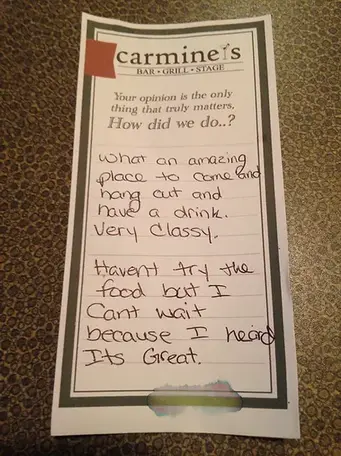 carmine's
BAR • GRILL • STAGE
Your opinion is the only
thing that truly matters.
How did we do..?
What an amazing
place to come and
hang out and
have a drink.
Very Classy.
Havent try the
food but I
Cant wait
because I heard
Its Great.